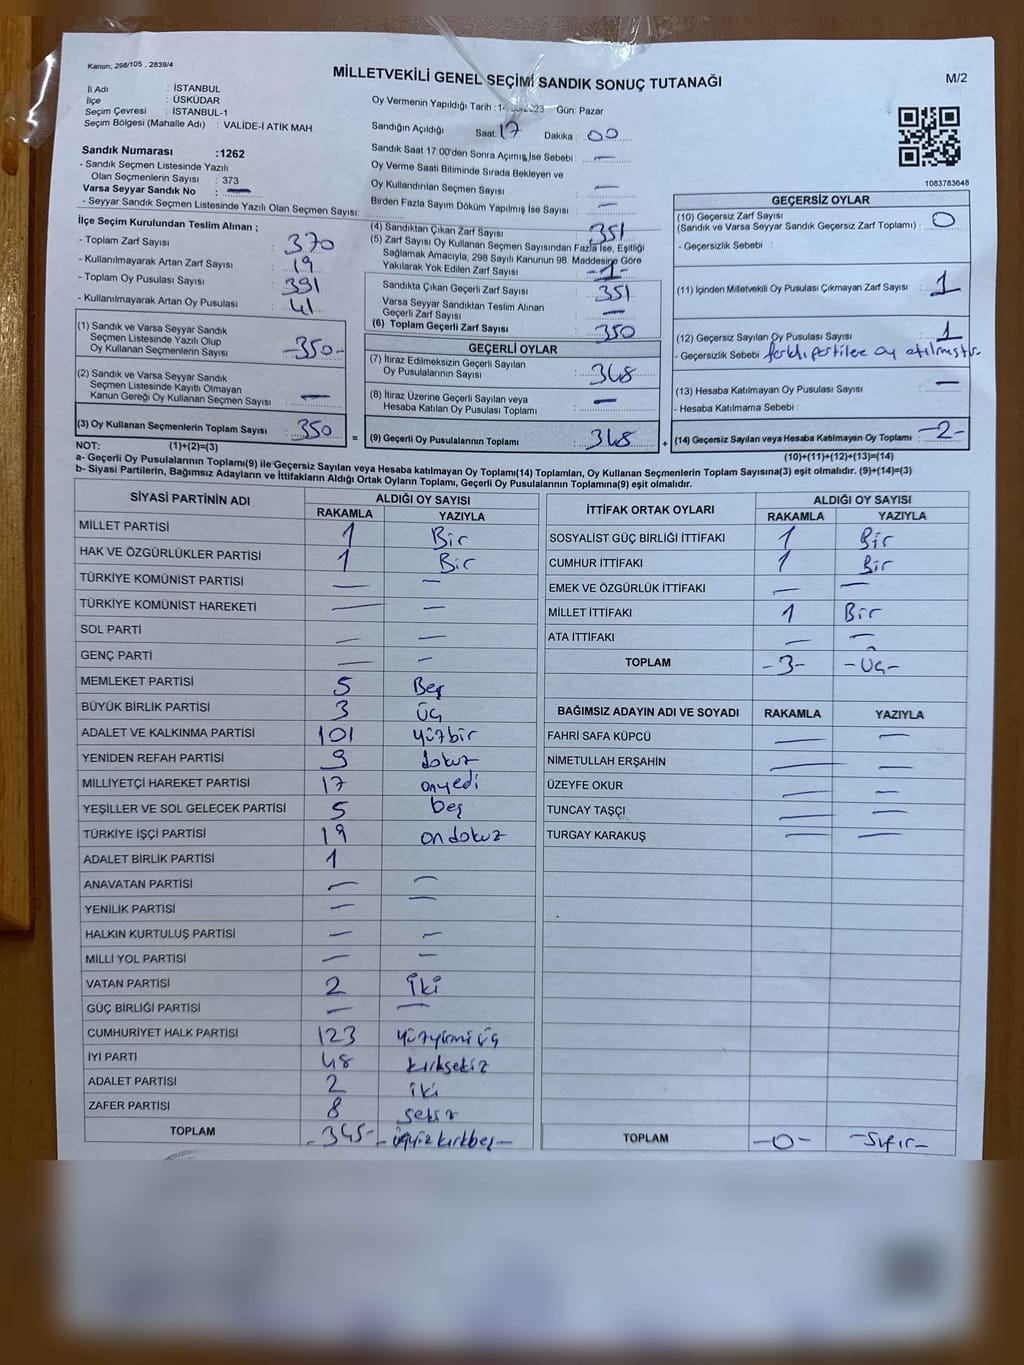 Kanun; 298/105 , 2839/4
MİLLETVEKİLİ GENEL SEÇİMİ SANDIK SONUÇ TUTANAĞI
M/2
İl Adı : İSTANBUL
İlçe : ÜSKÜDAR
Seçim Çevresi : İSTANBUL-1
Seçim Bölgesi (Mahalle Adı) : VALİDE-İ ATİK MAH.
Sandık Numarası :1262
- Sandık Seçmen Listesinde Yazılı
Olan Seçmenlerin Sayısı : 373
Varsa Seyyar Sandık No : —
- Seyyar Sandık Seçmen Listesinde Yazılı Olan Seçmen Sayısı:
Oy Vermenin Yapıldığı Tarih : Gün: Pazar
Sandığın Açıldığı Saat: 17 Dakika : 00
Sandık Saat 17.00'den Sonra Açılmış İse Sebebi : —
Oy Verme Saati Bitiminde Sırada Bekleyen ve
Oy Kullandırılan Seçmen Sayısı —
Birden Fazla Sayım Döküm Yapılmış İse Sayısı : —
1083783648
İlçe Seçim Kurulundan Teslim Alınan ;
- Toplam Zarf Sayısı : 370
- Kullanılmayarak Artan Zarf Sayısı : 19
- Toplam Oy Pusulası Sayısı : 391
- Kullanılmayarak Artan Oy Pusulası : 41
(1) Sandık ve Varsa Seyyar Sandık
Seçmen Listesinde Yazılı Olup
Oy Kullanan Seçmenlerin Sayısı : -350-
(2) Sandık ve Varsa Seyyar Sandık
Seçmen Listesinde Kayıtlı Olmayan
Kanun Gereği Oy Kullanan Seçmen Sayısı : —
(3) Oy Kullanan Seçmenlerin Toplam Sayısı : 350
(1)+(2)=(3)
(4) Sandıktan Çıkan Zarf Sayısı : 351
(5) Zarf Sayısı Oy Kullanan Seçmen Sayısından Fazla İse, Eşitliği
Sağlamak Amacıyla, 298 Sayılı Kanunun 98. Maddesine Göre
Yakılarak Yok Edilen Zarf Sayısı : -1-
Sandıkta Çıkan Geçerli Zarf Sayısı : 351
Varsa Seyyar Sandıktan Teslim Alınan
Geçerli Zarf Sayısı : —
(6) Toplam Geçerli Zarf Sayısı : 350
GEÇERLİ OYLAR
(7) İtiraz Edilmeksizin Geçerli Sayılan
Oy Pusulalarının Sayısı : 348
(8) İtiraz Üzerine Geçerli Sayılan veya
Hesaba Katılan Oy Pusulası Toplamı : —
= (9) Geçerli Oy Pusulalarının Toplamı : 348
GEÇERSİZ OYLAR
(10) Geçersiz Zarf Sayısı
(Sandık ve Varsa Seyyar Sandık Geçersiz Zarf Toplamı) : 0
- Geçersizlik Sebebi :
(11) İçinden Milletvekili Oy Pusulası Çıkmayan Zarf Sayısı : 1
(12) Geçersiz Sayılan Oy Pusulası Sayısı : 1
- Geçersizlik Sebebi farklı partilere oy atılmıştır.
(13) Hesaba Katılmayan Oy Pusulası Sayısı : —
- Hesaba Katılmama Sebebi :
+ (14) Geçersiz Sayılan veya Hesaba Katılmayan Oy Toplamı : -2-
(10)+(11)+(12)+(13)=(14)
NOT:
a- Geçerli Oy Pusulalarının Toplamı(9) ile Geçersiz Sayılan veya Hesaba katılmayan Oy Toplamı(14) Toplamları, Oy Kullanan Seçmenlerin Toplam Sayısına(3) eşit olmalıdır. (9)+(14)=(3)
b- Siyasi Partilerin, Bağımsız Adayların ve İttifakların Aldığı Ortak Oyların Toplamı, Geçerli Oy Pusulalarının Toplamına(9) eşit olmalıdır.
SİYASİ PARTİNİN ADI ALDIĞI OY SAYISI
RAKAMLA YAZIYLA
MİLLET PARTİSİ 1 Bir
HAK VE ÖZGÜRLÜKLER PARTİSİ 1 Bir
TÜRKİYE KOMÜNİST PARTİSİ — —
TÜRKİYE KOMÜNİST HAREKETİ — —
SOL PARTİ — —
GENÇ PARTİ — —
MEMLEKET PARTİSİ 5 Beş
BÜYÜK BİRLİK PARTİSİ 3 üç
ADALET VE KALKINMA PARTİSİ 101 yüzbir
YENİDEN REFAH PARTİSİ 9 dokuz
MİLLİYETÇİ HAREKET PARTİSİ 17 onyedi
YEŞİLLER VE SOL GELECEK PARTİSİ 5 beş
TÜRKİYE İŞÇİ PARTİSİ 19 ondokuz
ADALET BİRLİK PARTİSİ 1
ANAVATAN PARTİSİ — —
YENİLİK PARTİSİ — —
HALKIN KURTULUŞ PARTİSİ — —
MİLLİ YOL PARTİSİ — —
VATAN PARTİSİ 2 İki
GÜÇ BİRLİĞİ PARTİSİ — —
CUMHURİYET HALK PARTİSİ 123 yüzyirmi üç
İYİ PARTİ 48 kırksekiz
ADALET PARTİSİ 2 iki
ZAFER PARTİSİ 8 sekiz
TOPLAM -345- -üçyüzkırkbeş-
İTTİFAK ORTAK OYLARI ALDIĞI OY SAYISI
RAKAMLA YAZIYLA
SOSYALİST GÜÇ BİRLİĞİ İTTİFAKI 1 Bir
CUMHUR İTTİFAKI 1 Bir
EMEK VE ÖZGÜRLÜK İTTİFAKI — —
MİLLET İTTİFAKI 1 Bir
ATA İTTİFAKI — —
TOPLAM -3- -Üç-
BAĞIMSIZ ADAYIN ADI VE SOYADI RAKAMLA YAZIYLA
FAHRİ SAFA KÜPCÜ — —
NİMETULLAH ERŞAHİN — —
ÜZEYFE OKUR — —
TUNCAY TAŞÇI — —
TURGAY KARAKUŞ — —
TOPLAM -0- -Sıfır-